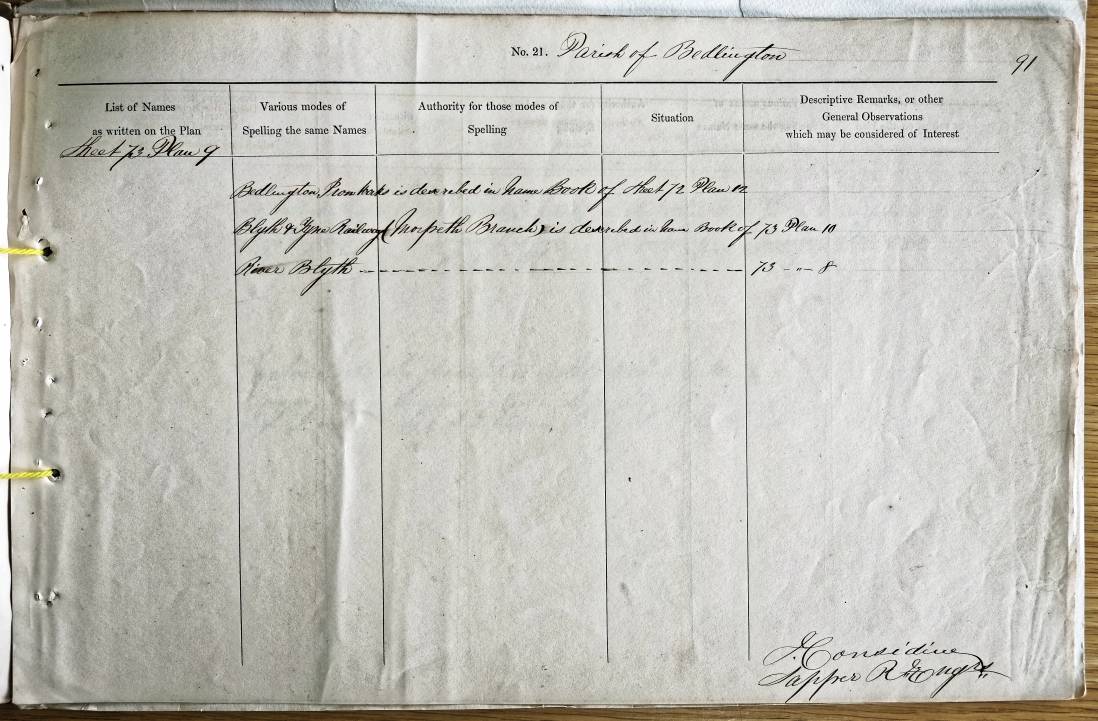 No. 21. Parish of Bedlington
91
List of Names
as written on the Plan
Various modes of
Spelling the same Names
Authority for those modes of
Spelling
Situation
Descriptive Remarks, or other
General Observations
which may be considered of Interest
Sheet 73 Plan 9
Bedlington Iron Works is described in Name Book of Sheet 72 Plan 12
Blyth & Tyne Railway (Morpeth Branch) is described in Name Book of 73 Plan 10
River Blyth - - - - - - - - - - - - - - - - - - - - 73 - " - 8
J. Considine
Sapper R. Engrs.